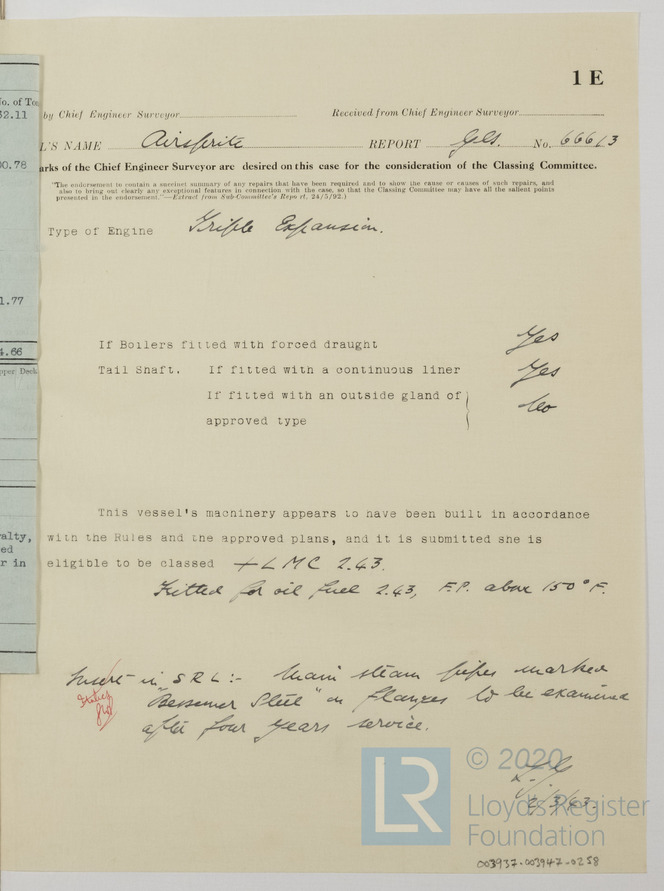 1 E
No. of To
32.11
by Chief Engineer Surveyor
Received from Chief Engineer Surveyor
L'S NAME Airsprite REPORT Gls. No. 66613
00.78
arks of the Chief Engineer Surveyor are desired on this case for the consideration of the Classing Committee.
"The endorsement to contain a succinct summary of any repairs that have been required and to show the cause or causes of such repairs, and
also to bring out clearly any exceptional features in connection with the case, so that the Classing Committee may have all the salient points
presented in the endorsement."—Extract from Sub-Committee's Report, 24/5/92.)
Type of Engine Triple Expansion.
1.77
If Boilers fitted with forced draught Yes
4.66
Tail Shaft. If fitted with a continuous liner Yes
pper Deck
If fitted with an outside gland of No
approved type
This vessel's machinery appears to have been built in accordance
alty,
with the Rules and the approved plans, and it is submitted she is
ed
eligible to be classed +LMC 2.43.
r in
Fitted for oil fuel 2.43, F.P. above 150°F.
Insert in S R L :- Main steam pipes marked
"Bessemer Steel" on flanges to be examined
after four years service.
2/3/43.
LR
© 2020
Lloyd's Register
Foundation
003937-003947-0258